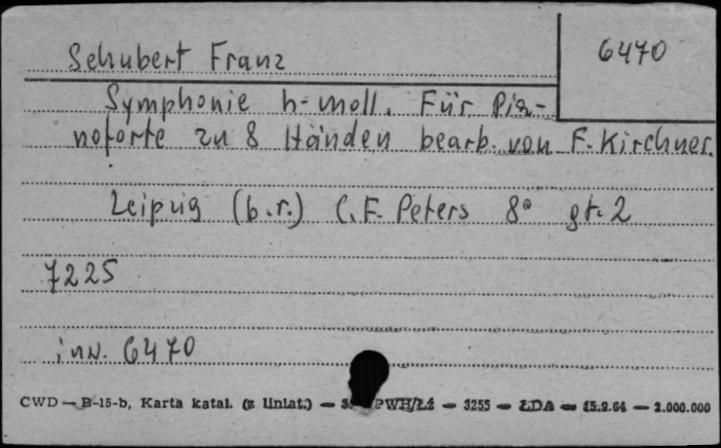 Schubert Franz
6470
Symphonie h-moll. Für Pia-
noforte zu 8 Händen bearb. von F. Kirchner.
Leipzig (b.r.) C.F. Peters 8° gt. 2
7225
inw. 6470
CWD — B-15-b, Karta katal. (z liniat.) — PWH/Łź — 3255 — ŁDA — 15.9.64 — 2.000.000